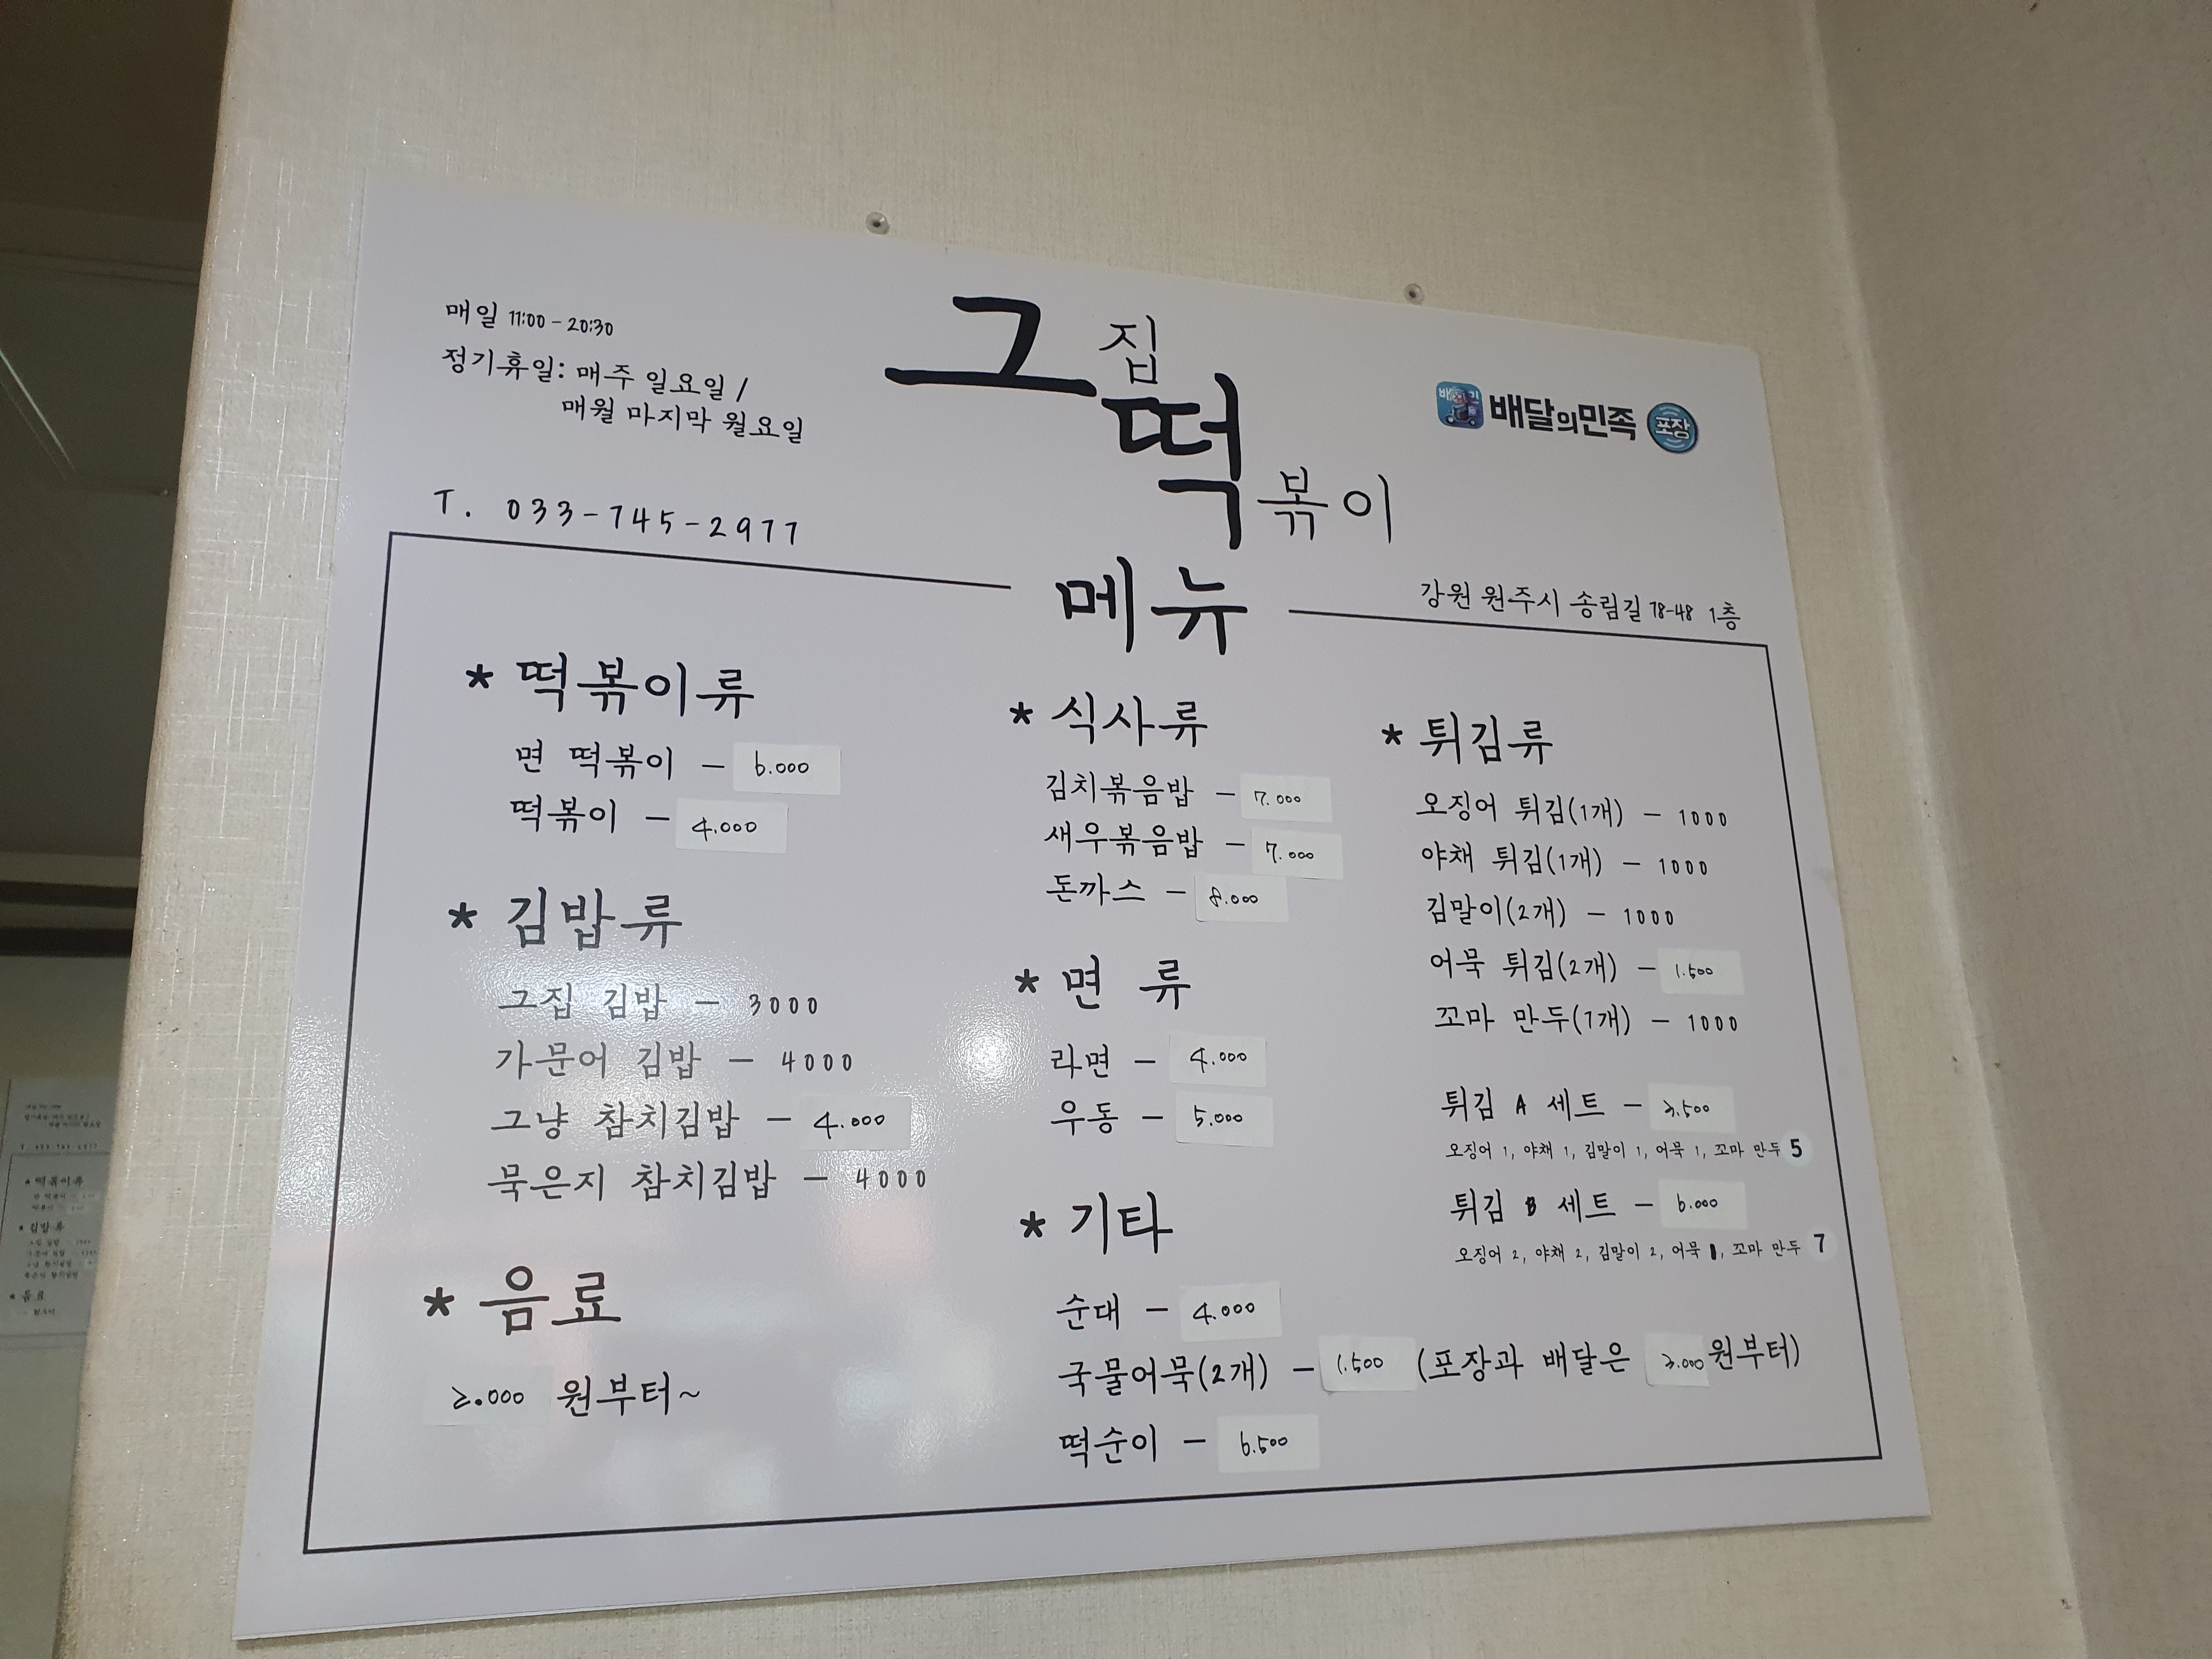 매일 11:00 - 20:30
정기휴일: 매주 일요일 /
매월 마지막 월요일
T. 033-745-2977
그집떡볶이
배달의민족 포장
메뉴
강원 원주시 송림길 78-48 1층
* 떡볶이류
면 떡볶이 - 6.000
떡볶이 - 4.000
* 김밥류
그집 김밥 - 3000
가문어 김밥 - 4000
그냥 참치김밥 - 4.000
묵은지 참치김밥 - 4000
* 음료
2.000 원부터~
* 식사류
김치볶음밥 - 7.000
새우볶음밥 - 7.000
돈까스 - 8.000
* 면 류
라면 - 4.000
우동 - 5.000
* 기타
순대 - 4.000
국물어묵(2개) - 1.500 (포장과 배달은 3.000원부터)
떡순이 - 6.500
* 튀김류
오징어 튀김(1개) - 1000
야채 튀김(1개) - 1000
김말이(2개) - 1000
어묵 튀김(2개) - 1.500
꼬마 만두(7개) - 1000
튀김 A 세트 - 3.500
오징어 1, 야채 1, 김말이 1, 어묵 1, 꼬마 만두 5
튀김 B 세트 - 6.000
오징어 2, 야채 2, 김말이 2, 어묵 1, 꼬마 만두 7